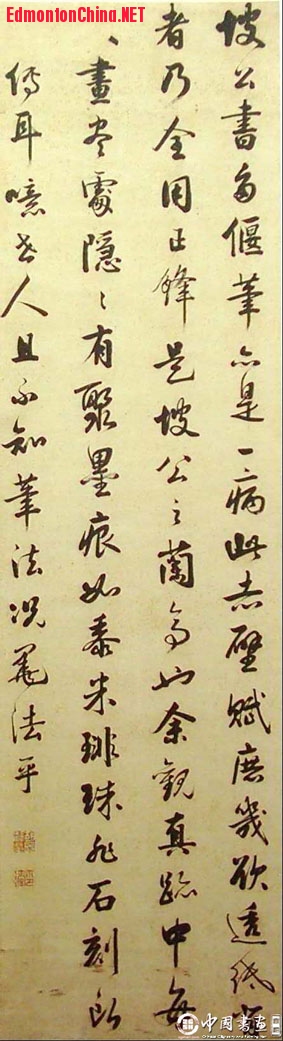 EdmontonChina.NET
坡公書多偃筆亦是一病此赤壁賦庶幾欲透紙背
者乃全用正鋒是坡公之蘭亭也余觀真跡中每
、畫盡處隱〻有聚墨痕如黍米琲珠非石刻所
傳耳噫世人且不知筆法況墨法乎
中國書画